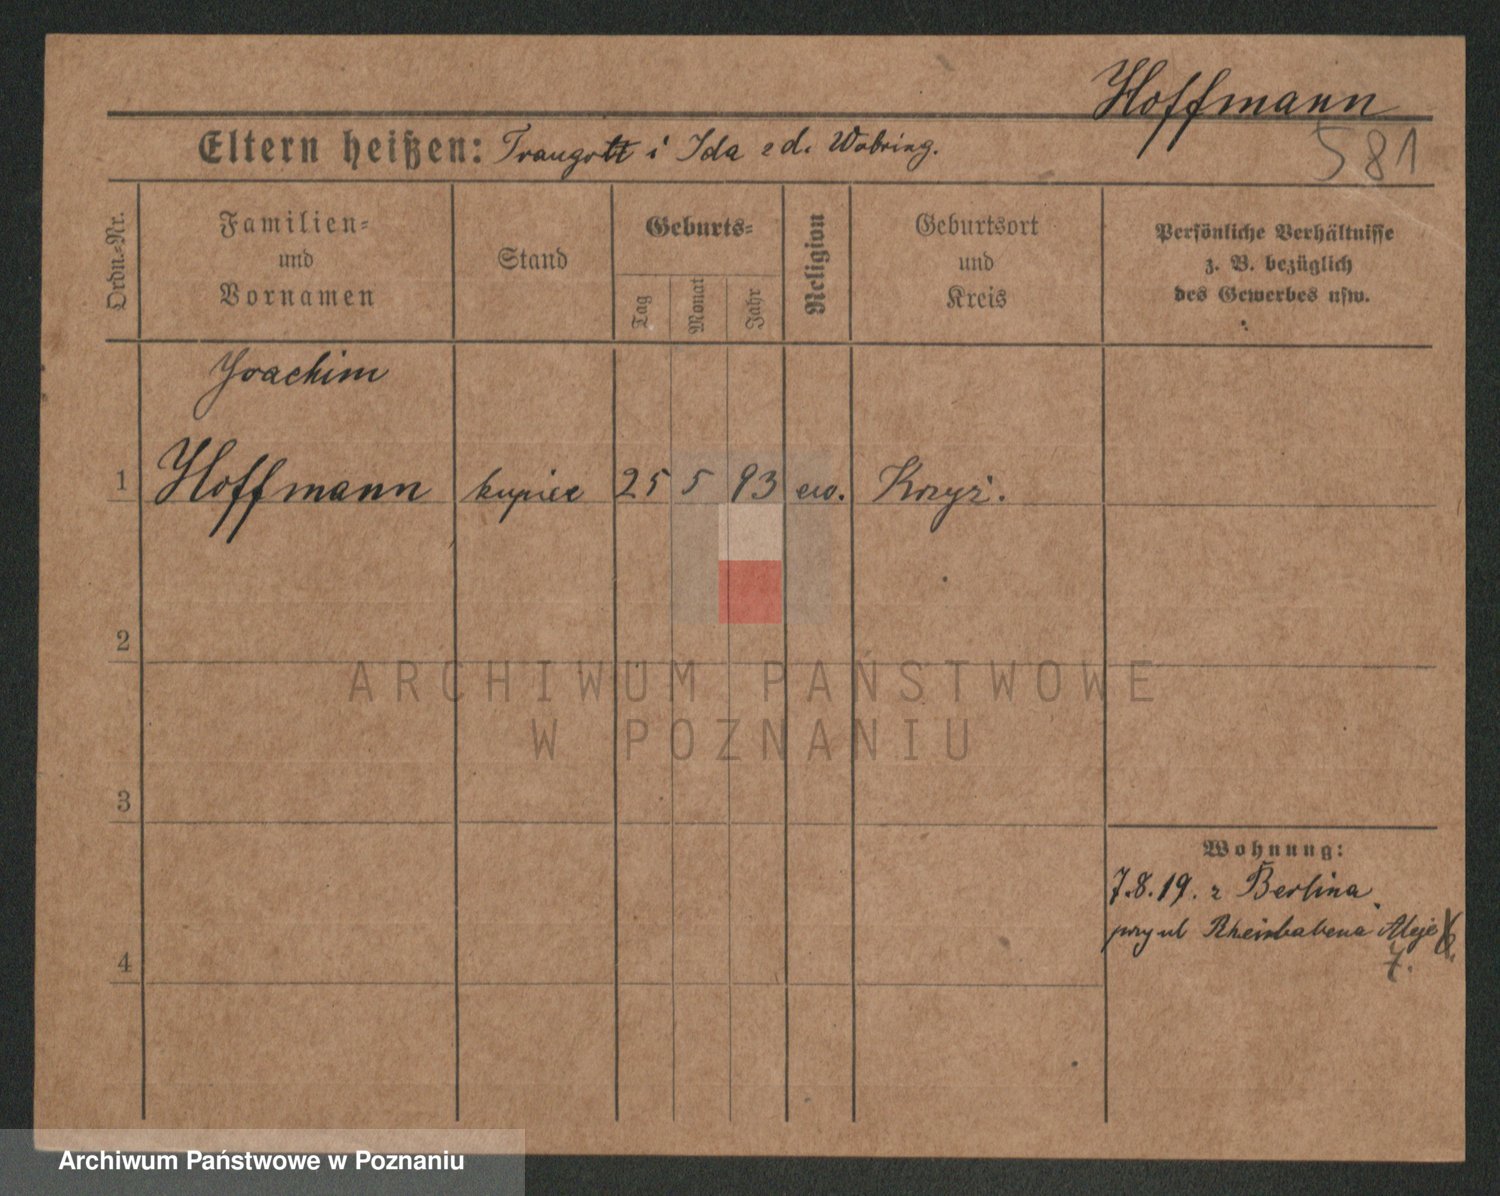 Hoffmann
581
Eltern heißen: Traugott i Ida zd. Wobring.
Ordn.-Nr.
Familien-
und
Vornamen
Stand
Geburts-
Tag
Monat
Jahr
Religion
Geburtsort
und
Kreis
Persönliche Verhältnisse
z. B. bezüglich
des Gewerbes usw.
Joachim
1 Hoffmann kupiec 25 5 93 ew. Krzyż.
2
ARCHIWUM PAŃSTWOWE
W POZNANIU
3
Wohnung:
7.8.19. z Berlina
przy ul Rheinbabena Aleje
7.
4
Archiwum Państwowe w Poznaniu